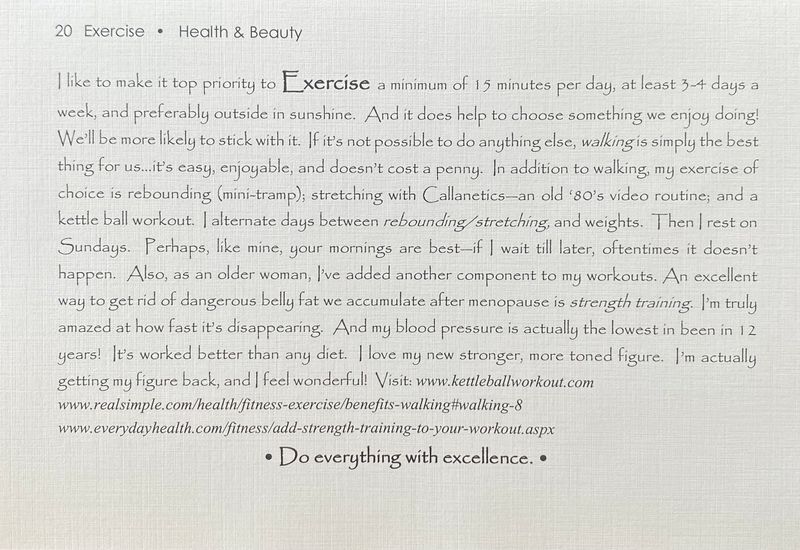 20 Exercise • Health & Beauty
I like to make it top priority to Exercise a minimum of 15 minutes per day, at least 3-4 days a
week, and preferably outside in sunshine. And it does help to choose something we enjoy doing!
We'll be more likely to stick with it. If it's not possible to do anything else, walking is simply the best
thing for us...it's easy, enjoyable, and doesn't cost a penny. In addition to walking, my exercise of
choice is rebounding (mini-tramp); stretching with Callanetics—an old '80's video routine; and a
kettle ball workout. I alternate days between rebounding/stretching, and weights. Then I rest on
Sundays. Perhaps, like mine, your mornings are best—if I wait till later, oftentimes it doesn't
happen. Also, as an older woman, I've added another component to my workouts. An excellent
way to get rid of dangerous belly fat we accumulate after menopause is strength training. I'm truly
amazed at how fast it's disappearing. And my blood pressure is actually the lowest in been in 12
years! It's worked better than any diet. I love my new stronger, more toned figure. I'm actually
getting my figure back, and I feel wonderful! Visit: www.kettleballworkout.com
www.realsimple.com/health/fitness-exercise/benefits-walking#walking-8
www.everydayhealth.com/fitness/add-strength-training-to-your-workout.aspx
• Do everything with excellence. •